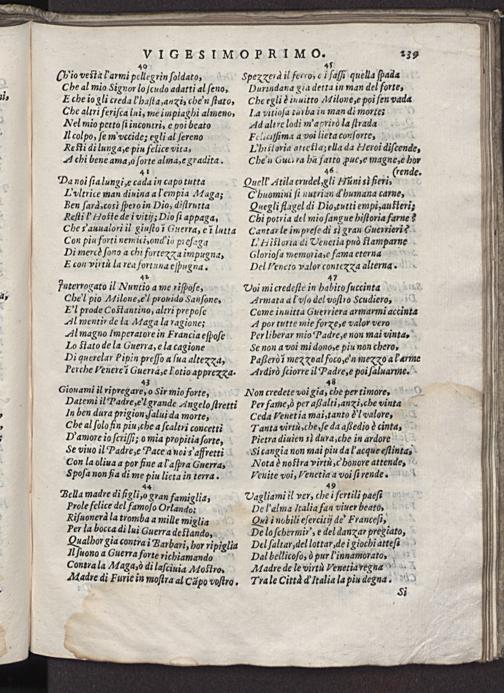 VIGESIMOPRIMO.
239
40
Ch'io vesta l'armi pellegrin soldato,
Che al mio Signor lo scudo adatti al seno,
E che io gli creda l'hasta, anzi, che'n stato,
Che altri ferisca lui, me impiaghi almeno,
Nel mio petto si incontri, e poi beato
Il colpo, se m'vccide; egli al sereno
Resti di lunga, e piu felice vita,
A chi bene ama, o forte alma, e gradita.
41
Da noi sia lungi, e cada in capo tutta
L'vltrice man diuina a l'empia Maga;
Ben sarà, così spero in Dio, distrutta
Resti l'Hoste de i vitij; Dio si appaga,
Che s'auualori il giusto i Guerra, e i lutta
Con piu forti nemici, ond'io presaga
Di mercè sono a chi fortezza impugna,
E con virtù la rea fortuna espugna.
42
Interrogato il Nuntio a me rispose,
Che'l pio Milone, e'l prouido Sansone,
E'l prode Costantino, altri prepose
Al mentir de la Maga la ragione;
Al magno Imperatore in Francia espose
Lo stato de la Guerra, e la cagione
Di querelar Pipin presso a sua altezza,
Perche Venere i Guerra, e l'otio apprezza.
43
Giouami il ripregare, o Sir mio forte,
Datemi il Padre, e'l grande Angelo stretti
In ben dura prigion, salui da morte,
Che al sol o fin piu, che a scaltri concetti
D'amore io scrissi; o mia propitia sorte,
Se viuo il Padre, e Pace a noi s'affretti
Con la oliua a por fine a l'aspra Guerra,
Sposa non sia di me piu lieta in terra.
44
Bella madre di figli, o gran famiglia,
Prole felice del famoso Orlando:
Risuonerà la tromba a mille miglia
Per la bocca di lui Guerra destando,
Qualhor gia contra i Barbari, hor ripiglia
Il suono a Guerra forte richiamando
Contra la Maga, ò di lasciuia Mostro,
Madre di Furie in mostra al Cãpo vostro.
45
Spezzerà il ferro, e i sassi quella spada
Durindana gia detta in man del forte,
Che egli è inuitto Milone, e poi sen vada
La vitiosa turba in man di morte;
Ad altre lodi m'aprirò la strada
Felicissima a voi lieta consorte,
L'historia attesta; ella da Heroi discende,
Che'n Guerra hà fatto, pue, e magne, e hor
(rende.
46
Quell'Atila crudel, gli Hũni sì fieri,
C'huomini si nutrian d'humana carne,
Quegli flagel di Dio, tutti empi, austeri;
Chi potria del mio sangue historia farne?
Cantar le imprese di sì gran Guerrieri?
L'Historia di Venetia può stamparne
Gloriosa memoria, e fama eterna
Del Veneto valor contezza alterna.
47
Voi mi credeste in habito succinta
Armata a l'vso del vostro Scudiero,
Come inuitta Guerriera armarmi accinta
A por tutte mie forze, e valor vero
Per liberar mio Padre, e non mai vinta,
Se non a voi mi dono, e piu non chero,
Passerò i mezzo al foco, e'n mezzo a l'arme
Ardirò sciorre il Padre, e poi saluarme.
48
Non credete voi gia, che per timore,
Per fame, ò per assalti, anzi, che vinta
Ceda Venetia mai, tanto è'l valore,
Tanta virtù, che se da assedio è cinta,
Pietra diuien sì dura, che in ardore
Si cangia non mai piu da l'acque estinta,
Nota è nostra virtù, c'honore attende,
Venite voi, Venetia a voi si rende.
49
Vagliami il ver, che i fertili paesi
De l'alma Italia fan viuer beato,
Quì i nobili esercitij de' Francesi,
De lo schermir', e del danzar pregiato,
Del saltar, del lottar, de i giochi attesi
Dal bellicoso, ò pur l'innamorato,
Madre de le virtù Venetia regna
Tra le Città d'Italia la piu degna.
Si